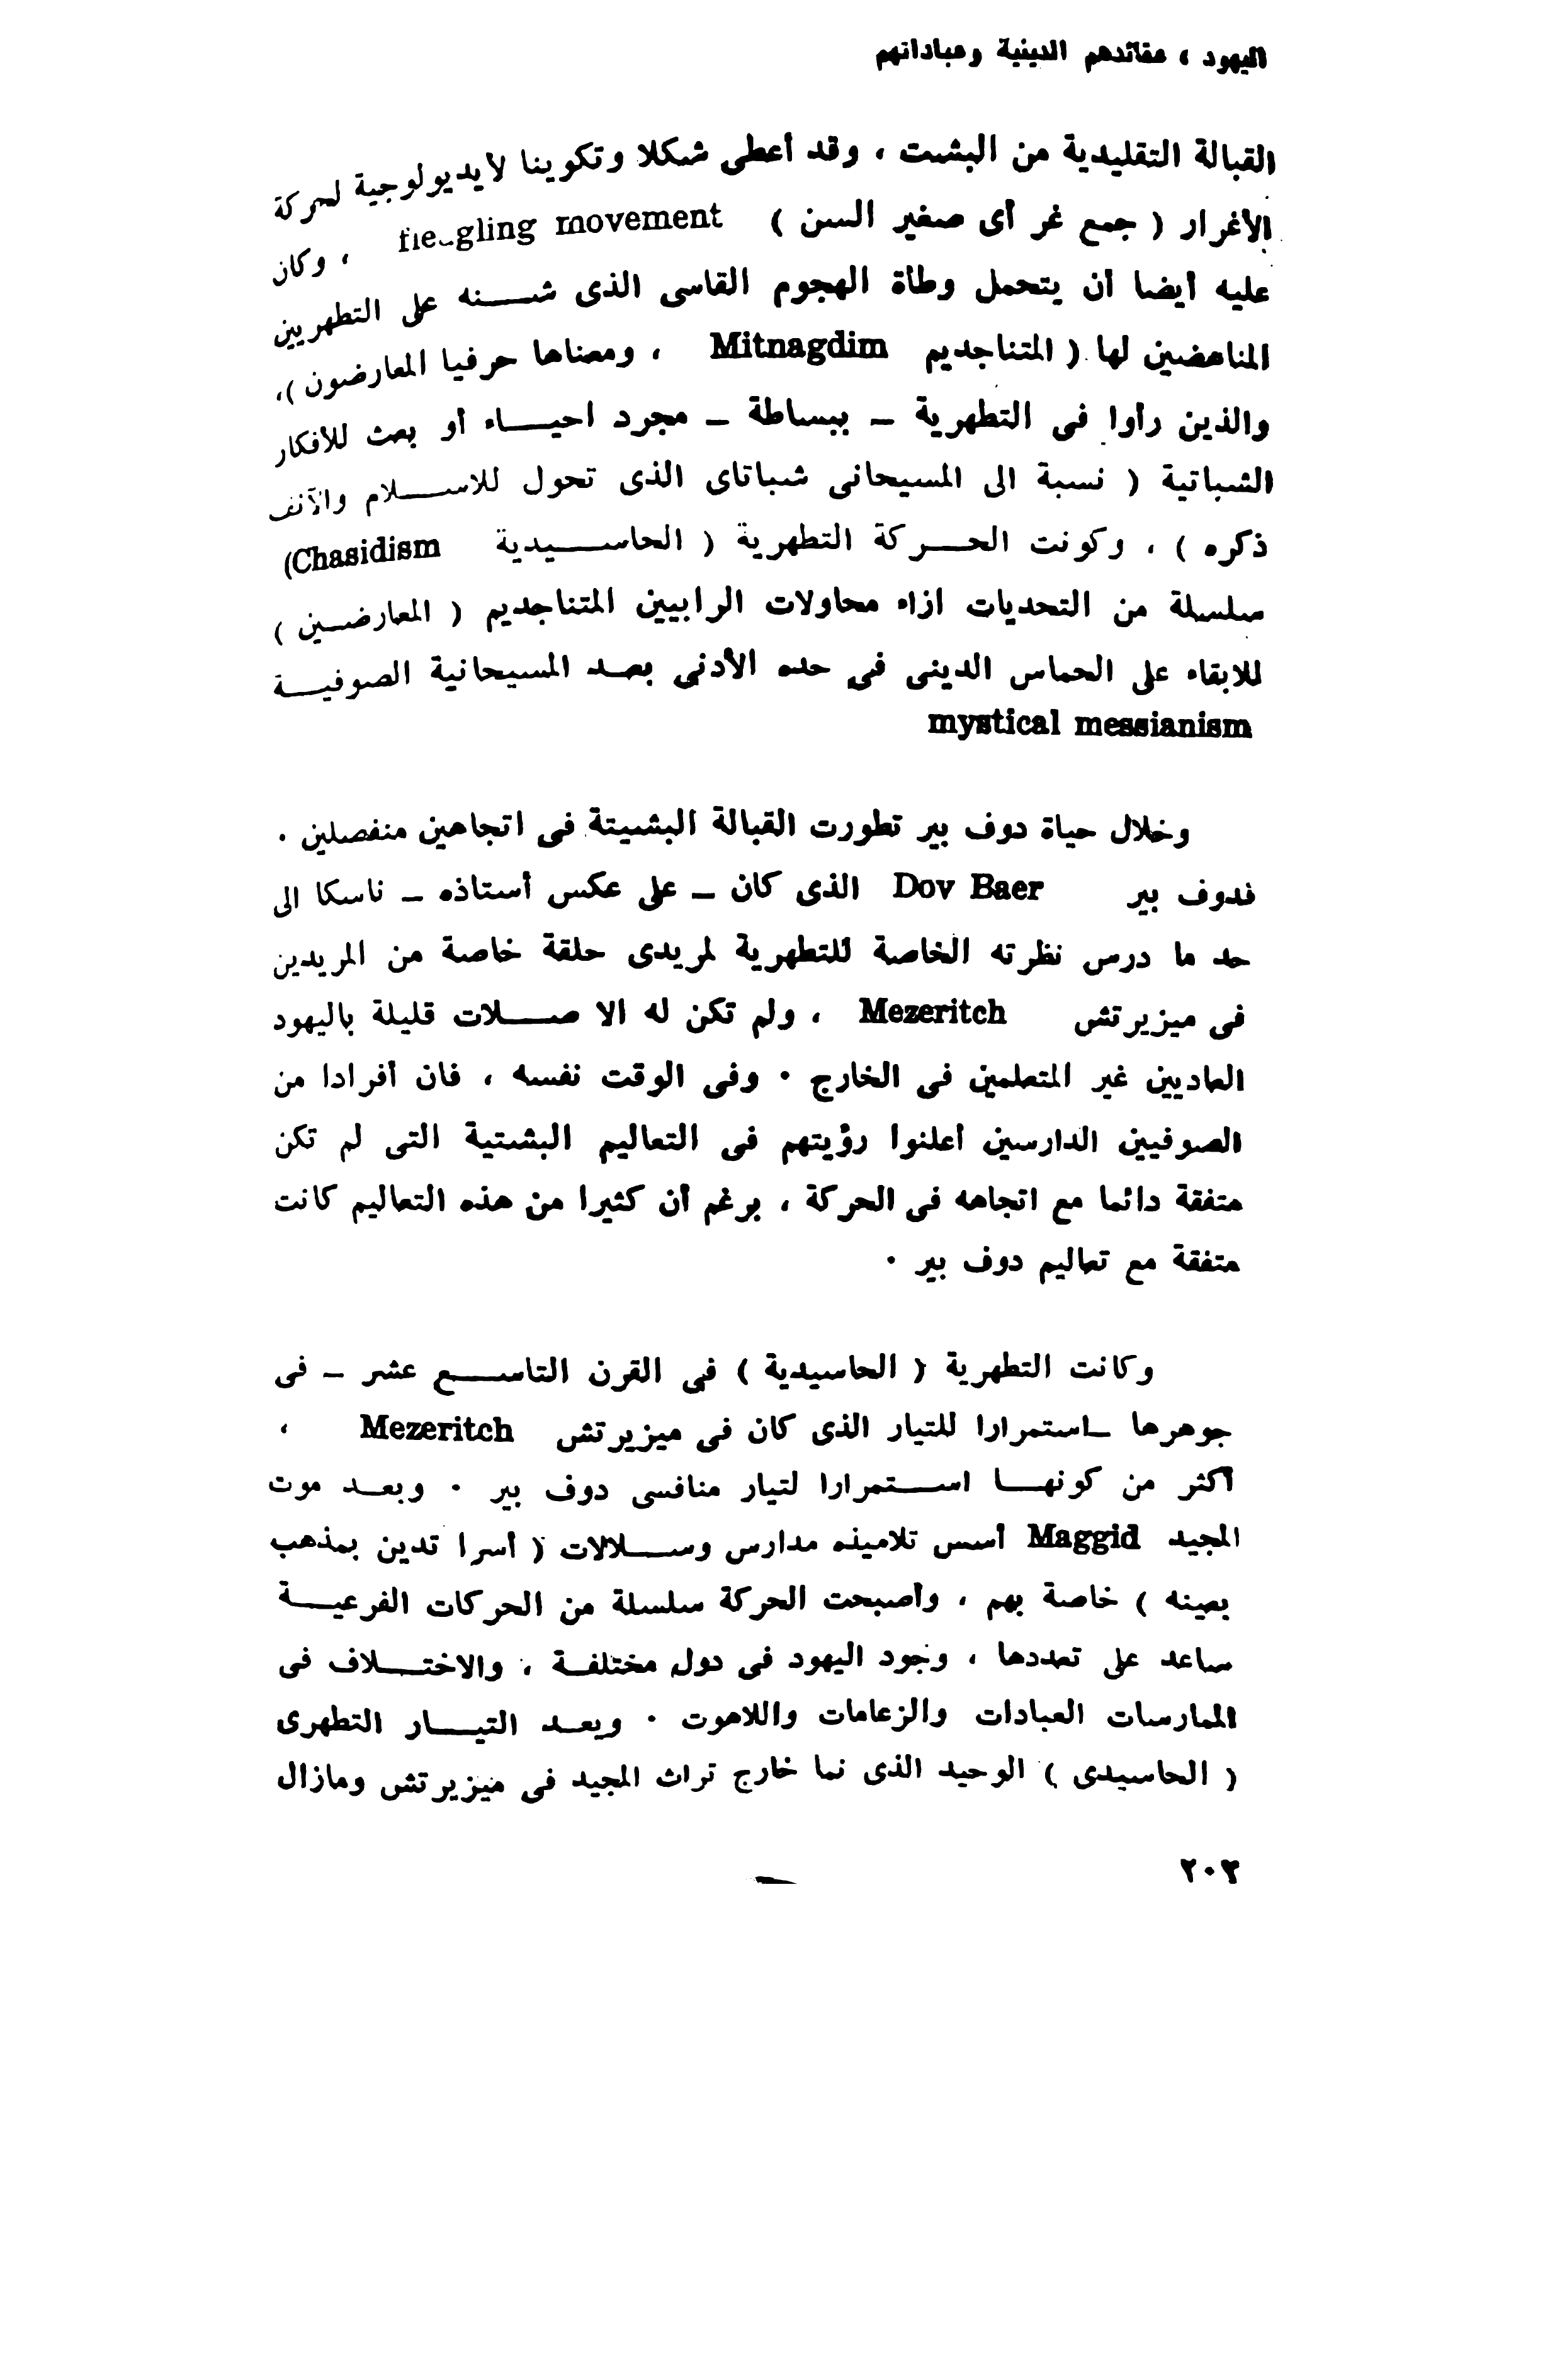 اليهود ، عقائدهم الدينية وعباداتهم
القبالة التقليدية من البشت ، وقد أعطى شكلا وتكوينا لأيديولوجية لحركة
الأغرار ( جمع غر أى صغير السن ) movement ، وكان
عليه أيضا أن يتحمل وطأة الهجوم القاسى الذى شـــنه على التطهريين
المناهضين لها ( المتناجديم Mitnagdim ، ومعناها حرفيا المعارضون )،
والذين رأوا فى التطهرية – ببساطة – مجرد احيـــاء أو بعث للأفكار
الشباتية ( نسبة الى المسيحانى شباتاى الذى تحول للاســـلام والآنف
ذكره ) ، وكونت الحـــركة التطهرية ( الحاســـيدية Chasidism)
سلسلة من التحديات ازاء محاولات الرابيين المتناجديم ( المعارضـين )
للابقاء على الحماس الدينى فى حده الأدنى بعـد المسيحانية الصوفيـــة
mystical messianism
وخلال حياة دوف بير تطورت القبالة البشيتة فى اتجاهين منفصلين ·
فدوف بير Dov Baer الذى كان – على عكس أستاذه – ناسكا الى
حد ما درس نظرته الخاصة للتطهرية لمريدى حلقة خاصة من المريدين
فى ميزيرتش Mezeritch ، ولم تكن له الا صـــلات قليلة باليهود
العاديين غير المتعلمين فى الخارج · وفى الوقت نفسه ، فان أفرادا من
الصوفيين الدارسين أعلنوا رؤيتهم فى التعاليم البشتية التى لم تكن
متفقة دائما مع اتجاهه فى الحركة ، برغم أن كثيرا من هذه التعاليم كانت
متفقة مع تعاليم دوف بير ·
وكانت التطهرية ( الحاسيدية ) فى القرن التاســـع عشر – فى
جوهرها –استمرارا للتيار الذى كان فى ميزيرتش Mezeritch ،
أكثر من كونهـــا اســـتمرارا لتيار منافسى دوف بير · وبعـد موت
المجيد Maggid أسس تلاميذه مدارس وســـلالات ( أسرا تدين بمذهب
بعينه ) خاصة بهم ، وأصبحت الحركة سلسلة من الحركات الفرعيـــة
ساعد على تعددها ، وجود اليهود فى دول مختلفـة ، والاختـــلاف فى
الممارسات العبادات والزعامات واللاهوت · ويعـد التيـــار التطهرى
( الحاسيدى ) الوحيد الذى نما خارج تراث المجيد فى ميزيرتش ومازال
٢٠٢